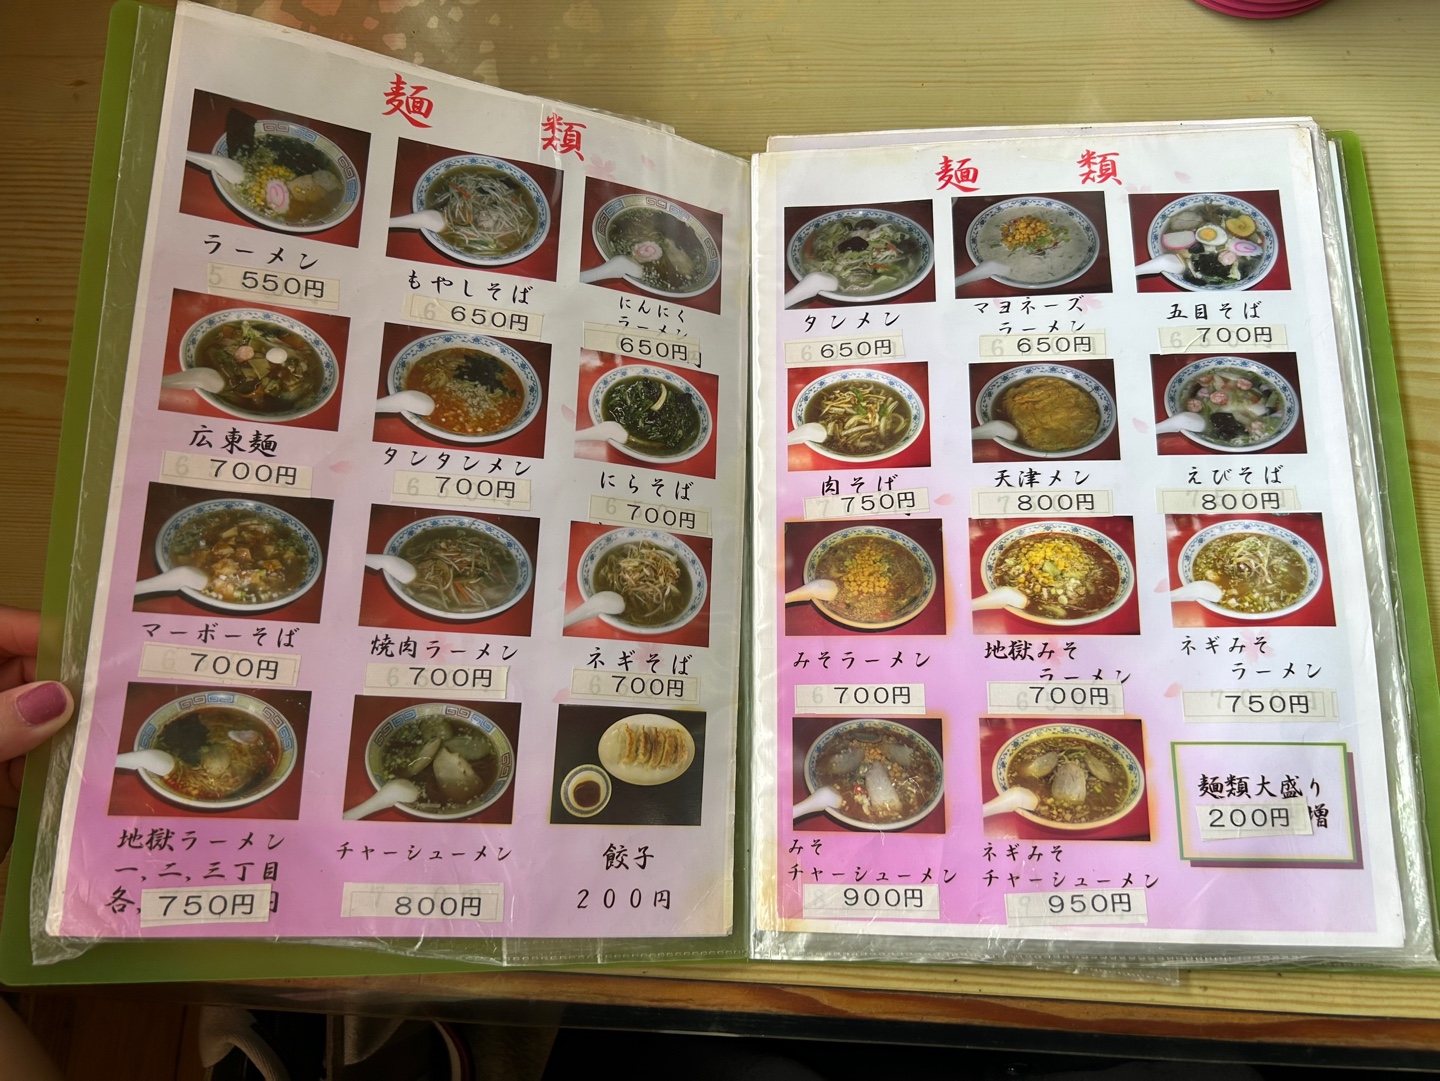 麺類
ラーメン
550円
もやしそば
650円
にんにく
ラーメン
650円
広東麺
700円
タンタンメン
700円
にらそば
700円
マーボーそば
700円
焼肉ラーメン
700円
ネギそば
700円
地獄ラーメン
一,二,三丁目
各,750円
チャーシューメン
800円
餃子
200円
麺類
タンメン
650円
マヨネーズ
ラーメン
650円
五目そば
700円
肉そば
750円
天津メン
800円
えびそば
800円
みそラーメン
700円
地獄みそ
ラーメン
700円
ネギみそ
ラーメン
750円
みそ
チャーシューメン
900円
ネギみそ
チャーシューメン
950円
麺類大盛り
200円増